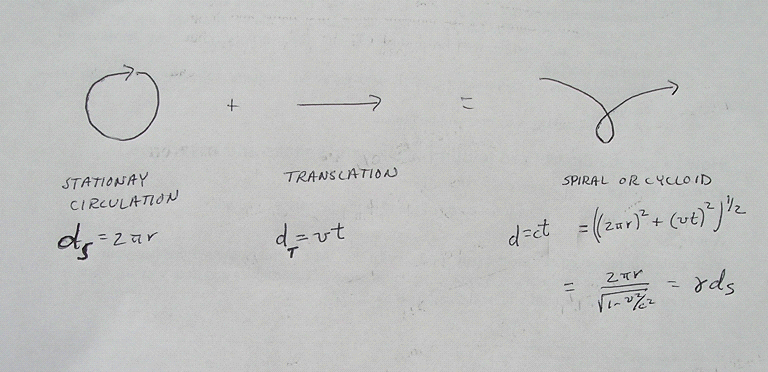 + =
STATIONAY
CIRCULATION
d_S = 2πr
TRANSLATION
d_T = vt
SPIRAL OR CYCLOID
d=ct = ((2πr)² + (vt)²)^1/2
= 2πr / √(1-v²/c²) = γd_S